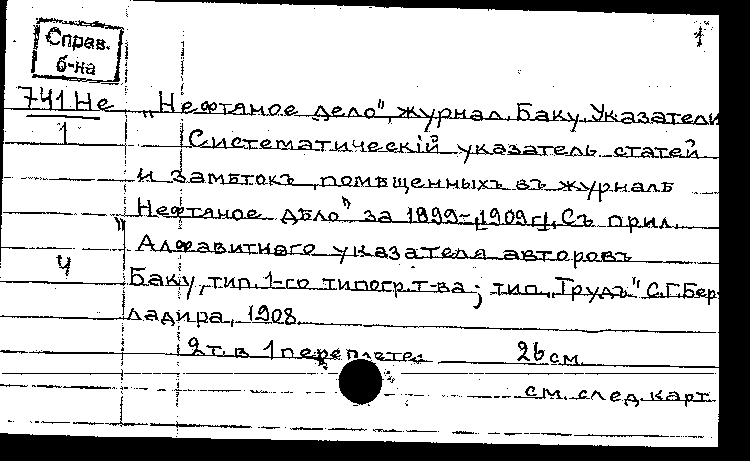 Справ.
б-на
1
741 Не
1
„Нефтяное дело", журнал. Баку. Указатели
Систематическiй указатель статей
и замѣтокъ, помѣщенныхъ въ журналѣ
„Нефтяное дѣло" за 1899-1909 гг. Съ прил.
Алфавитнаго указателя авторовъ
Ч
Баку, тип. 1-го типогр. т-ва; тип. „Трудъ" С.Г.Бер-
ладира, 1908.
2 т. в 1 переплете. 26 см.
см. след. карт.